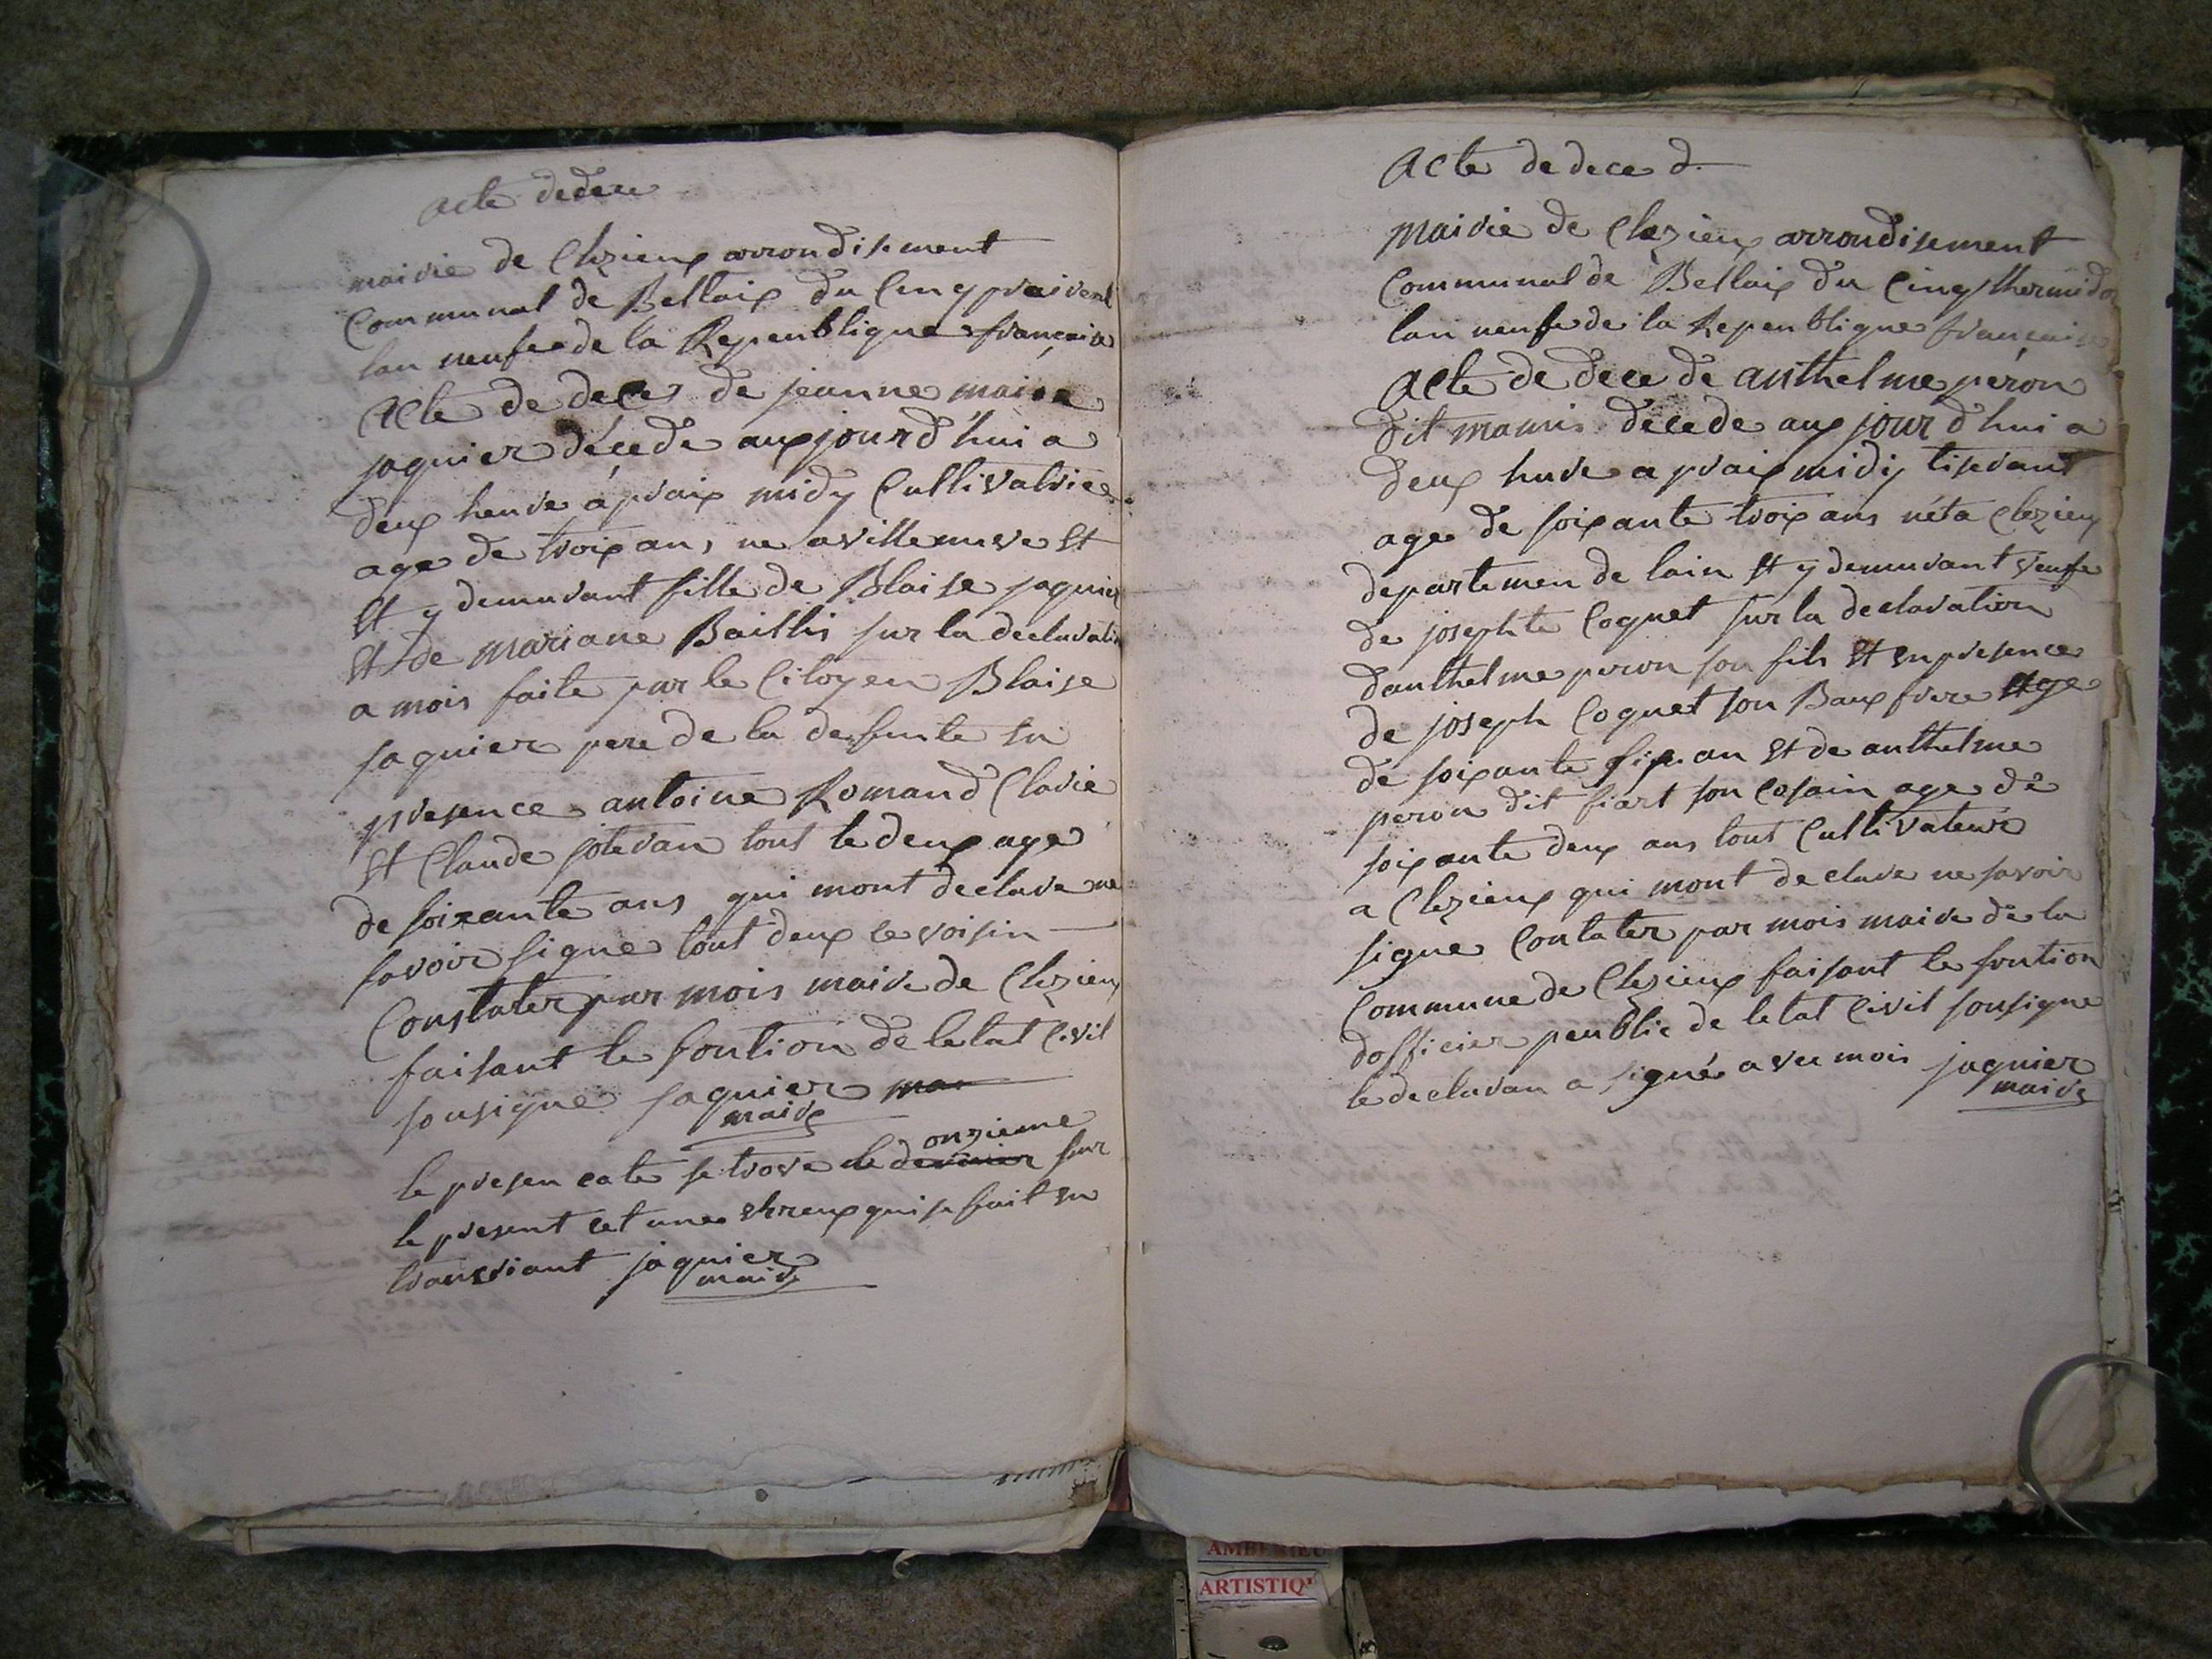 acte de dece
mairie de Clezieux arrondisement
Communal de Bellaix du Cinq prairerl
lan neufe de la Repeublique francaise
acte de deces de jeanne maire
jaquier décede aux jourd'hui a
deux heure apraix midy Cultivatrice
age de troix ans ne a villeneuve et
et y demurant fille de Blaise jaquier
et de mariane Baillis sur la declaration
a mois faite par le Citoyen Blaise
jaquier pere de la defunte en
presence antoine Romand Clavie
et Claude tout le deux age
de soixante ans qui mont declare ne
savoir signe tout deux ce voisin
Constater par mois maire de Clezieux
faisant le fontion de letat Civil
sousigne jaquier mai
maire
onzieme
le presen cate se trove le dernier sur
le present cet une ehreux qui se fait en
transriant jaquier
maire
acte de dece d.
mairie de Clezieux arrondisement
Communal de Bellaix du Cinq thermidor
lan neufe de la Repeublique francaise
acte de dece de anthelme peron
dit mamis décede aux jour d'hui a
deux hure apraix midy tiserant
age de soixante troix ans né ta Clezieux
departemen de lain et y demurant veufe
de josephte Coquet sur la declaration
danthelme peron son fils et en presence
de joseph Coquet son Baux frere age
de soixante six an et de anthelme
peron dit fiart son cosain age de
soixante deux ans tout Cultivateur
a Clezieux qui mont declare ne savoir
signe Contater par mois maire de la
Commune de Clezieux faisant le fontion
dofficier peublic de letat Civil sousigne
le declaran a signé avec mois jaquier
maire
AMBERIEU
ARTISTIQ